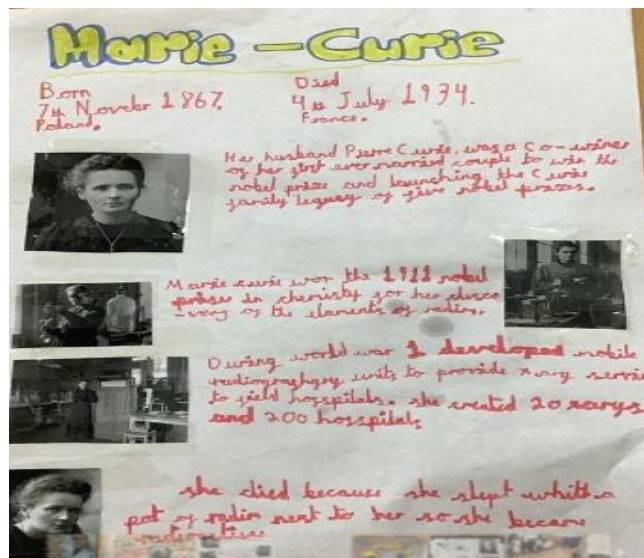 Marie - Curie
Born
7th November 1867.
Poland.
Died
4th July 1934.
France.
Her husband Pierre Curie, was a Co-winer
of her first ever married couple to win the
nobel prize and launching the Curie
family legacy of five nobel prizes.
Marie curie won the 1911 nobel
prize in chemisty for her disco
-very of the elements of radim.
During world war 1 developed mobile
radiography units to provide xray servic
to field hosspitals. she created 20 xarys
and 200 hosspitals
she died because she slept whith a
pot of radim next to her so she became
radioactive